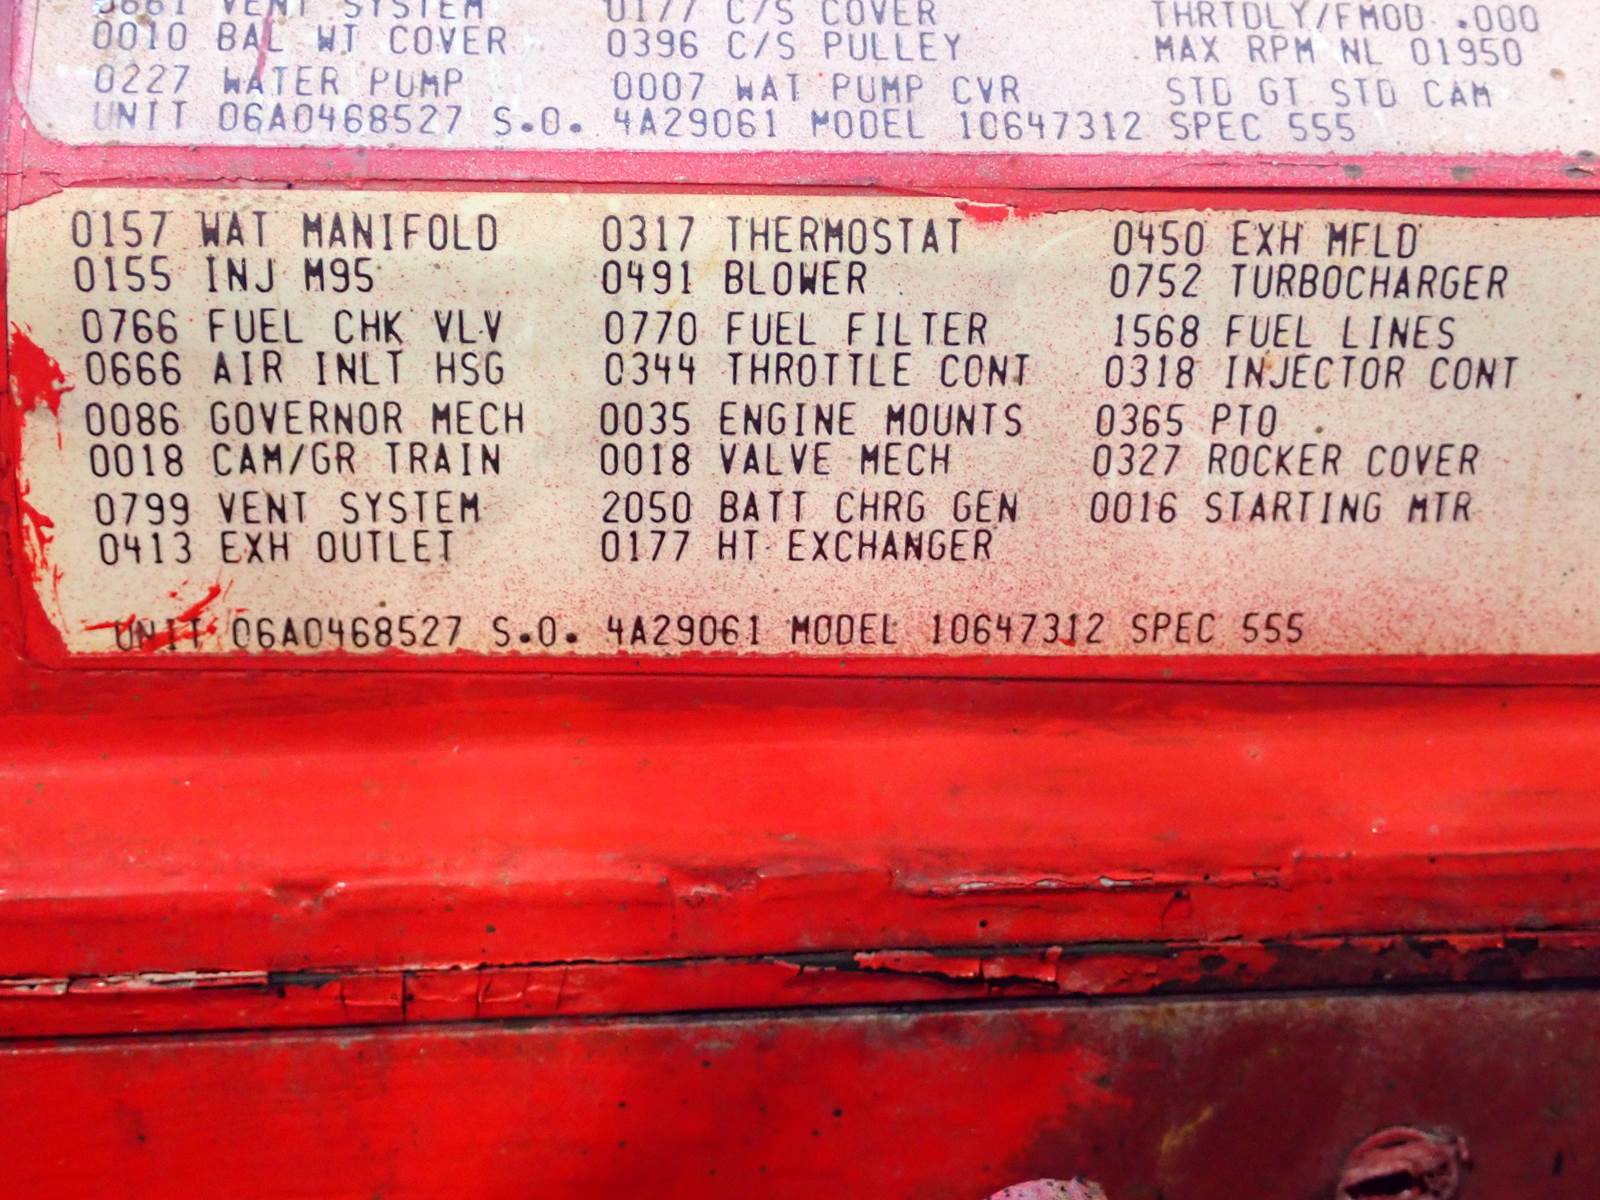 0661 VENT SYSTEM 0177 C/S COVER THRTDLY/FMOD .000
0010 BAL WT COVER 0396 C/S PULLEY MAX RPM NL 01950
0227 WATER PUMP 0007 WAT PUMP CVR STD GT STD CAM
UNIT 06A0468527 S.O. 4A29061 MODEL 10647312 SPEC 555
0157 WAT MANIFOLD 0317 THERMOSTAT 0450 EXH MFLD
0155 INJ M95 0491 BLOWER 0752 TURBOCHARGER
0766 FUEL CHK VLV 0770 FUEL FILTER 1568 FUEL LINES
0666 AIR INLT HSG 0344 THROTTLE CONT 0318 INJECTOR CONT
0086 GOVERNOR MECH 0035 ENGINE MOUNTS 0365 PTO
0018 CAM/GR TRAIN 0018 VALVE MECH 0327 ROCKER COVER
0799 VENT SYSTEM 2050 BATT CHRG GEN 0016 STARTING MTR
0413 EXH OUTLET 0177 HT EXCHANGER
UNIT 06A0468527 S.O. 4A29061 MODEL 10647312 SPEC 555